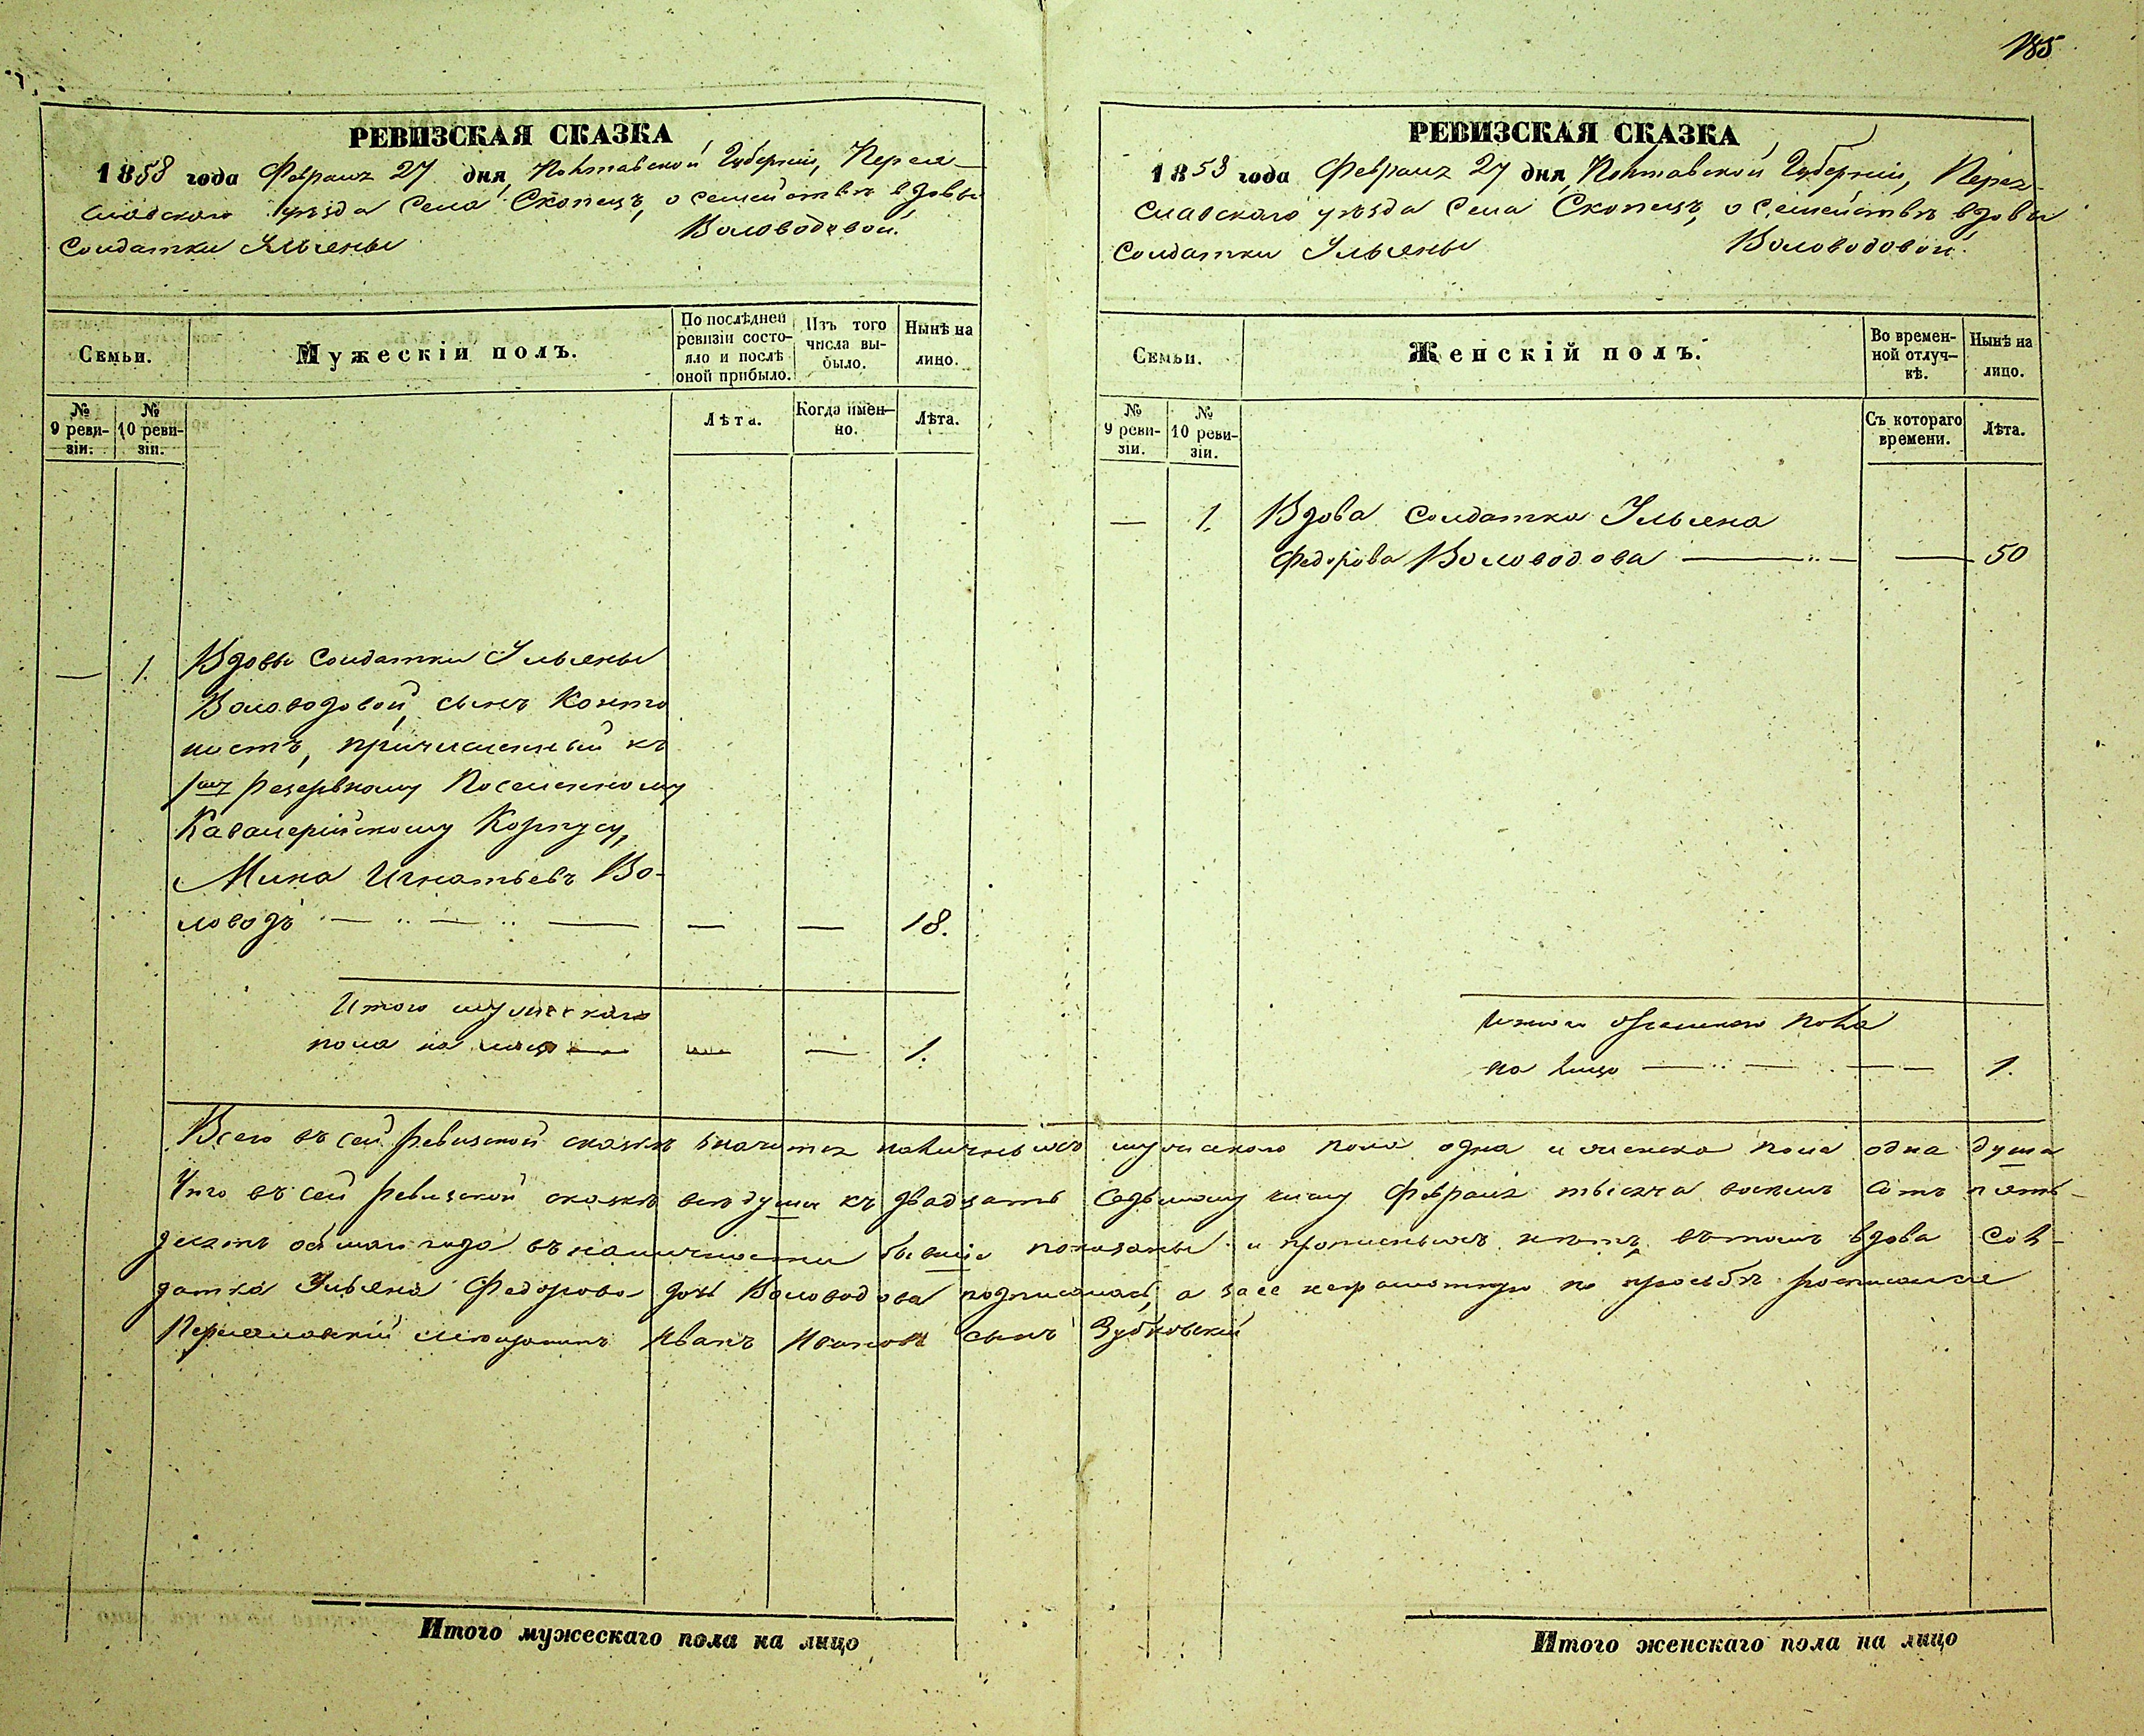 185
РЕВИЗСКАЯ СКАЗКА
1858 года Февраля 27 дня, Полтавской Губерніи, Перея-
славского уѣзда Села Скопецъ, о семействѣ вдовы
Солдатки Ульяны Воловодовой.
Семьи.
Мужескій полъ.
По послѣдней
ревизіи состо-
яло и послѣ
оной прибыло.
Изъ того
числа вы-
было.
Нынѣ на
лицо.
№
9 реви-
зіи.
№
10 реви-
зіи.
Лѣта.
Когда имен-
но.
Лѣта.
— 1. Вдовы Солдатки Ульяны
Воловодовой, сынъ Канто
нистъ, причисленный къ
1му Резервному Поселенному
Кавалерійскому Корпусу,
Мина Игнатьевъ Во-
ловодъ — — — — — 18.
Итого мужескаго
пола на лицо — — — 1.
РЕВИЗСКАЯ СКАЗКА
1858 года Февраля 27 дня, Полтавской Губерніи, Перея-
славского уѣзда Села Скопецъ, о семействѣ вдовы
Солдатки Ульяны Воловодовой.
Семьи.
Женскій полъ.
Во времен-
ной отлуч-
кѣ.
Нынѣ на
лицо.
№
9 реви-
зіи.
№
10 реви-
зіи.
Съ котораго
времени.
Лѣта.
— 1. Вдова Солдатка Ульяна
Федорова Воловодова — — — 50
Итого женского пола
на лицо — — — — 1.
Всего въ сей ревизской сказкѣ значится наличныхъ мужского пола одна и женска пола одна душа
Что въ сей ревизской сказкѣ всѣ души къ двадцать седьмому числу Февраля тысяча восемь сотъ пять-
десятъ осьмаго года въ наличности бывшіе показаны и прописныхъ нѣтъ, въ томъ вдова Сол-
датка Ульяна Федорова дочь Воловодова подписалась, а за ее неграмотную по просьбѣ росписался
Переяславскій мѣщанинъ Иванъ Ивановъ сынъ Зубковскій
Итого мужескаго пола на лицо
Итого женскаго пола на лицо